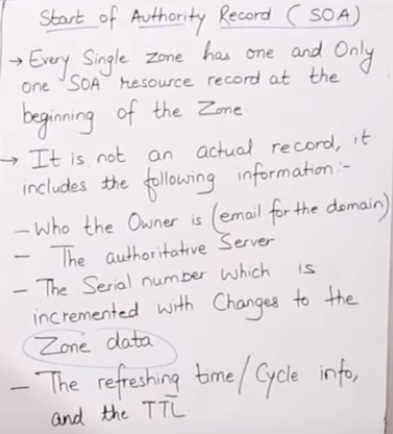 Start of Authority Record (SOA)
→ Every Single zone has one and Only
one SOA resource record at the
beginning of the Zone
→ It is not an actual record, it
includes the following information:-
- Who the Owner is (email for the domain)
- The authoritative Server
- The Serial number which is
incremented with Changes to the
Zone data
- The refreshing time/Cycle info,
and the TTL